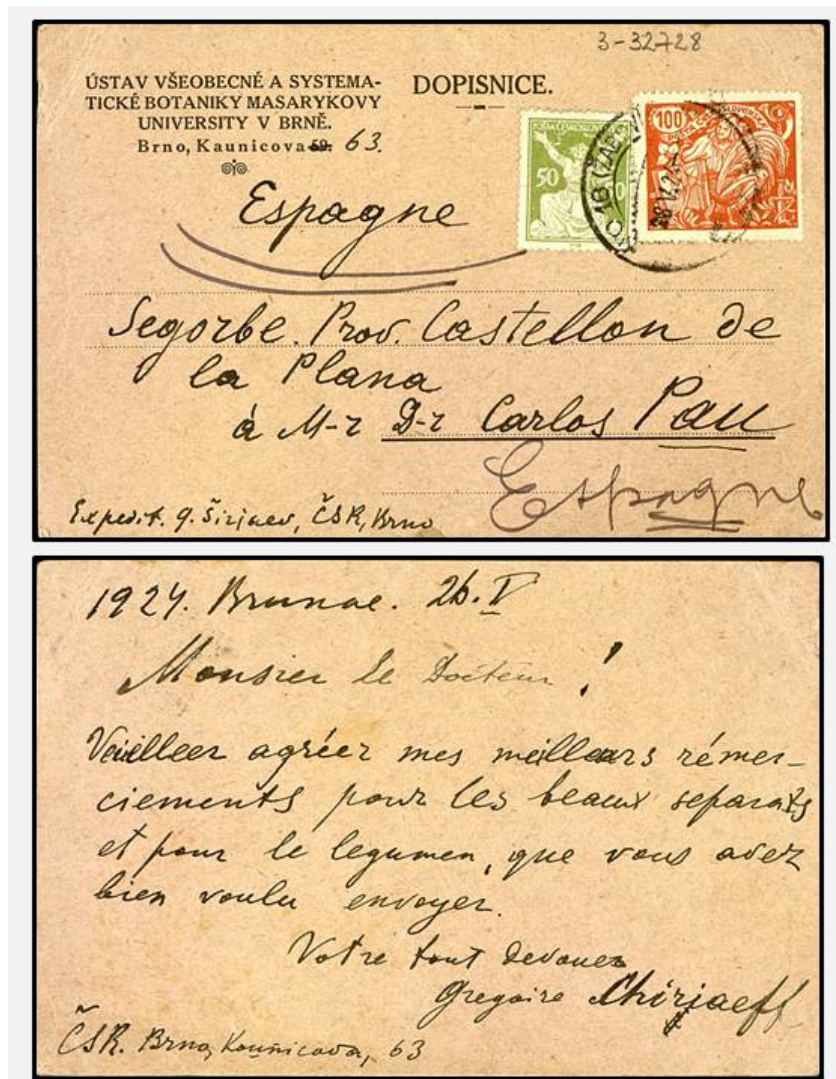 3-32728
ÚSTAV VŠEOBECNÉ A SYSTEMA-
TICKÉ BOTANIKY MASARYKOVY
UNIVERSITY V BRNĚ.
Brno, Kaunicova 59. 63.
DOPISNICE.
50
100
Espagne
Segorbe. Prov. Castellon de
la Plana
à M-r D-r Carlos Pau
Espagne
Expedit. G. Širjaev, ČSR, Brno
1924. Brunae. 26. V
Monsier le Docteur!
Veuilleer agréer mes meilleurs rémer-
ciements pour les beaux separats
et pour le legumen, que vous avez
bien voulu envoyer.
Votre tout devouer
Gregoire Chirjaeff
ČSR. Brno, Kounicova, 63